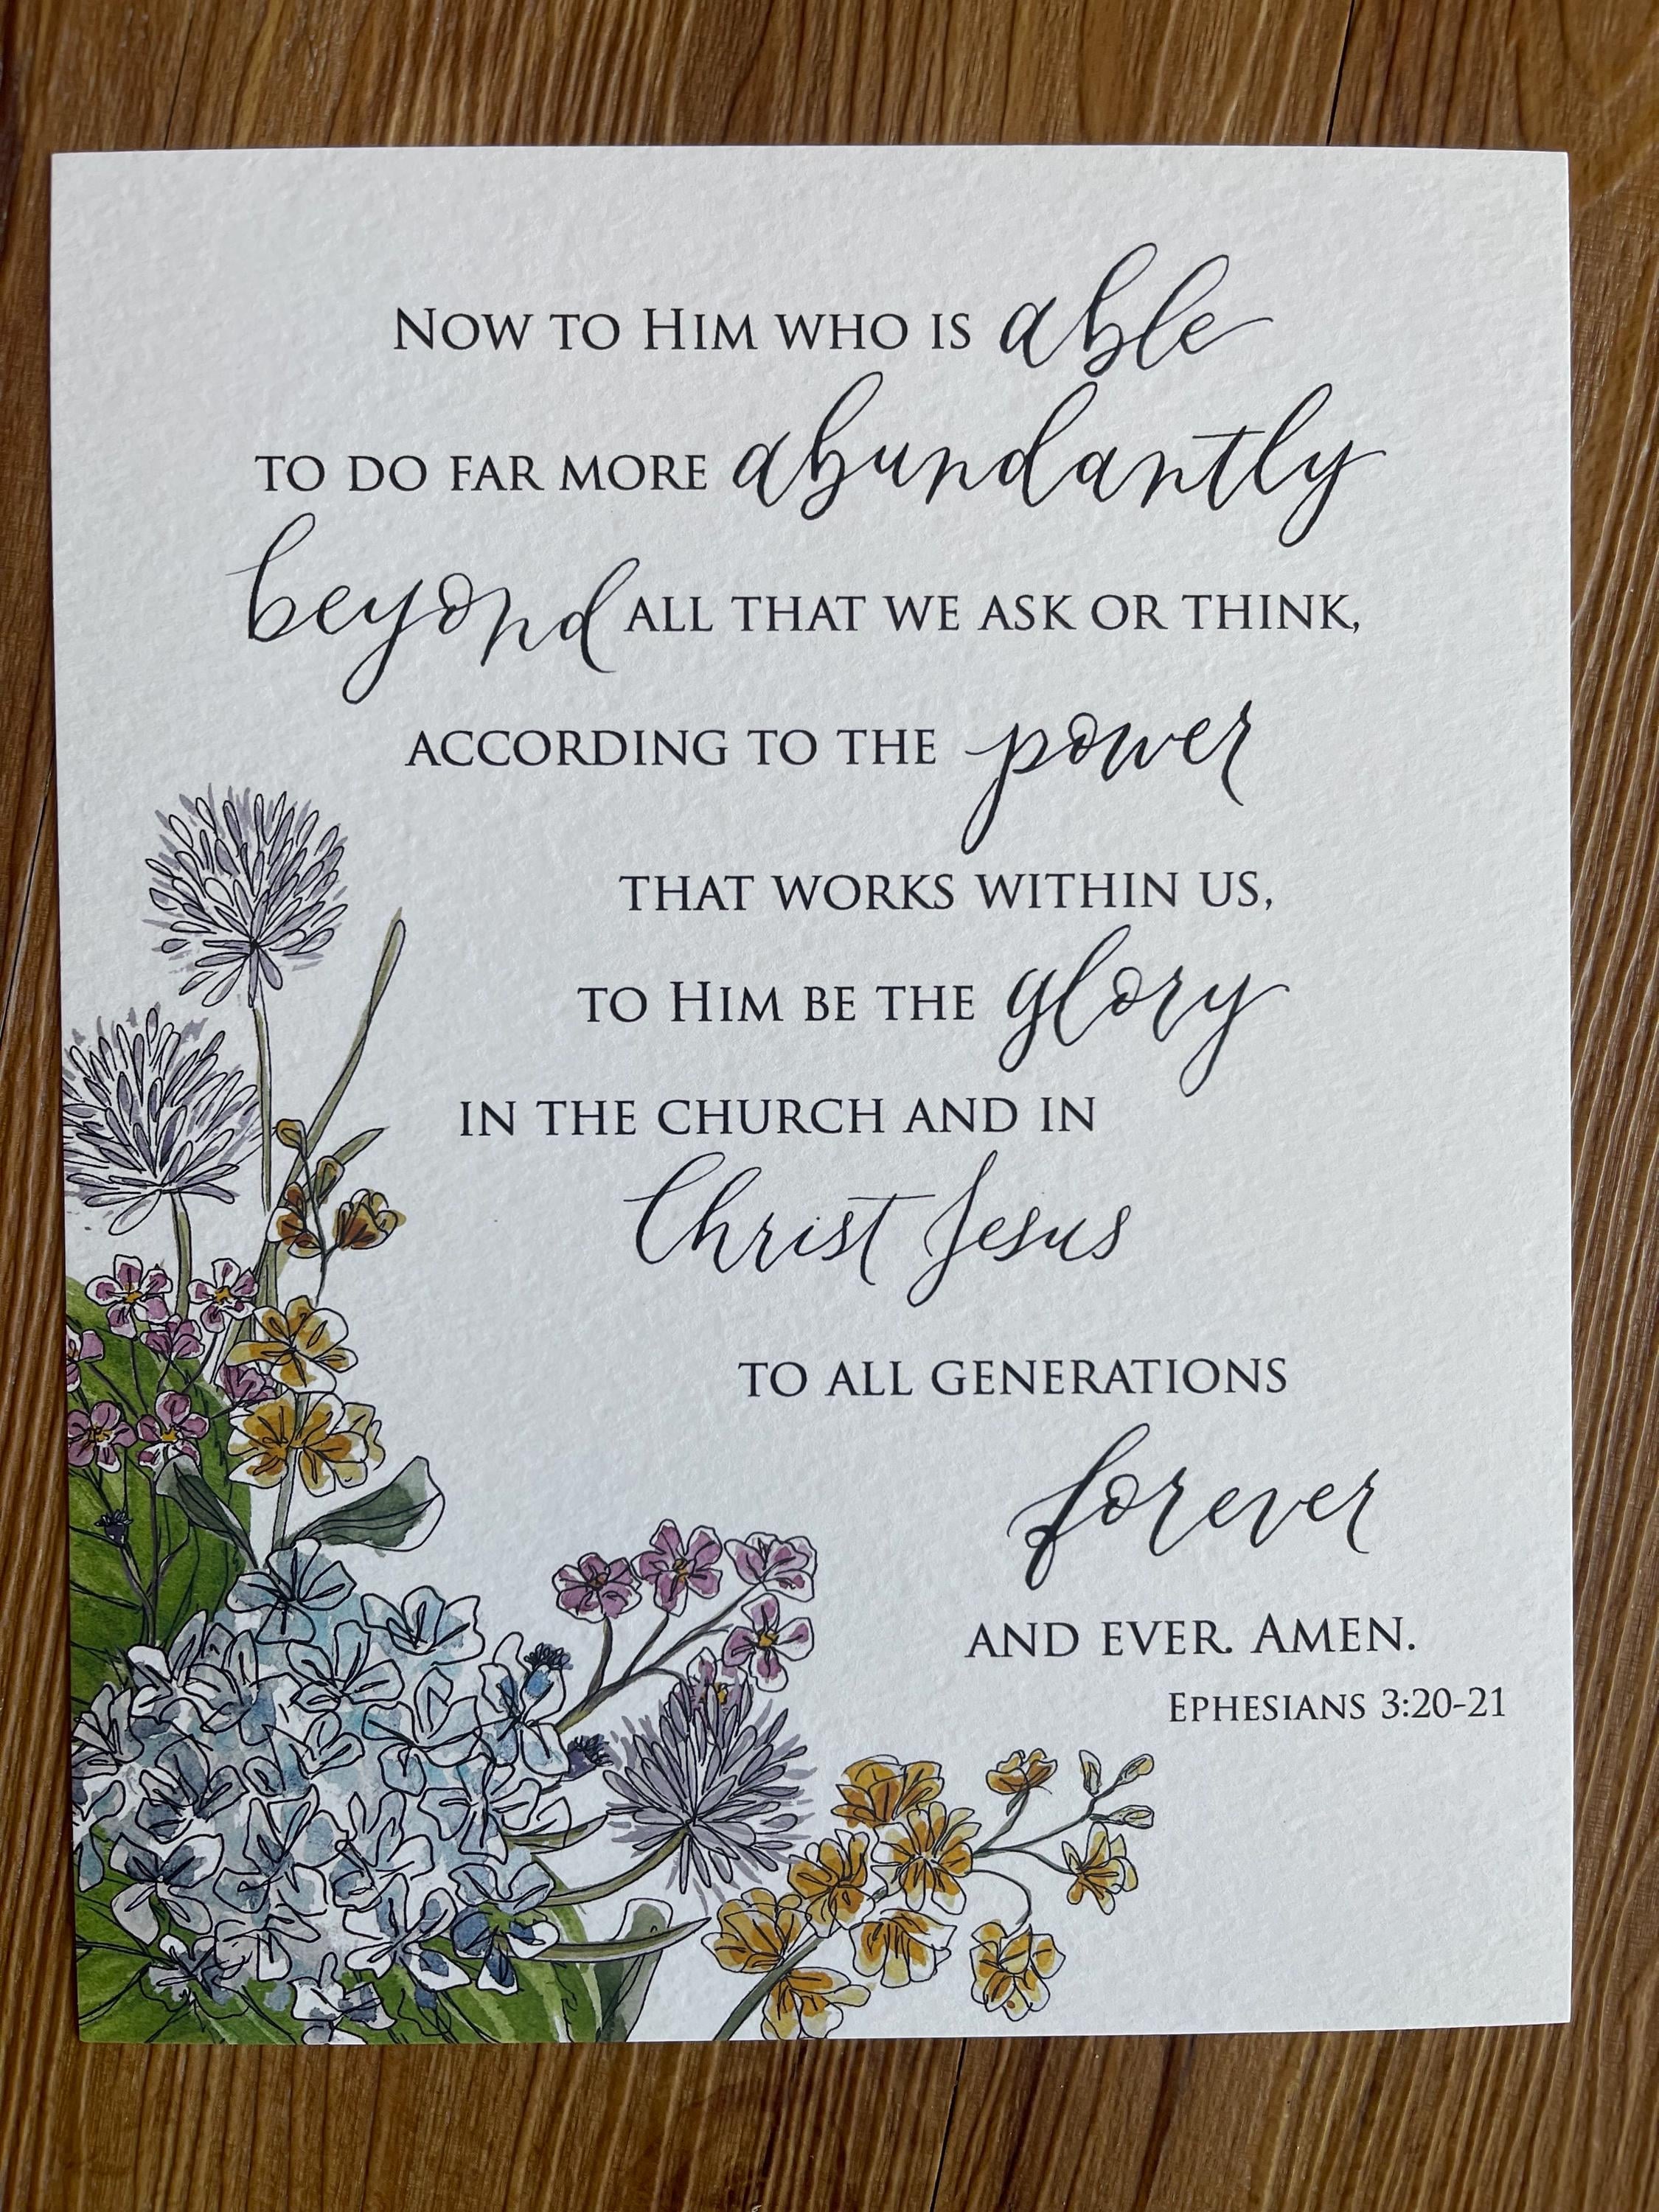 Now to Him who is able
to do far more abundantly
beyond all that we ask or think,
according to the power
that works within us,
to Him be the glory
in the church and in
Christ Jesus
to all generations
forever
and ever. Amen.
Ephesians 3:20-21